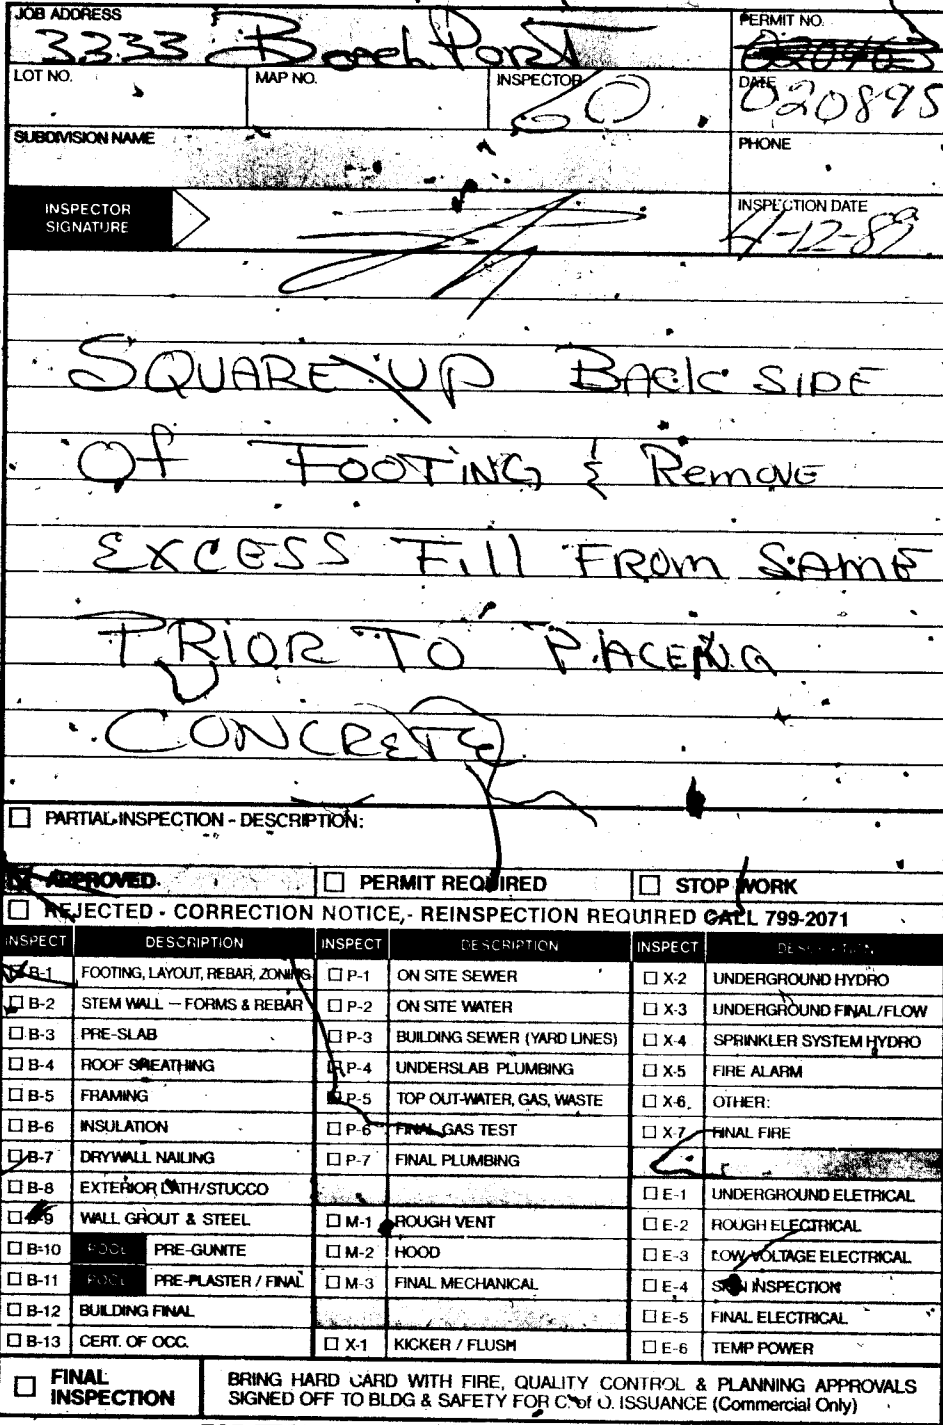 JOB ADDRESS
3333 Beach Port
PERMIT NO.
LOT NO.
MAP NO.
INSPECTOR
60
DATE
020895
SUBDIVISION NAME
PHONE
INSPECTOR SIGNATURE
INSPECTION DATE
4-12-89
SQUARE UP BACK SIDE
OF FOOTING & REMOVE
EXCESS FILL FROM SAME
PRIOR TO PLACING
CONCRETE
☐ PARTIAL INSPECTION - DESCRIPTION:
☒ APPROVED ☐ PERMIT REQUIRED ☐ STOP WORK
☐ REJECTED - CORRECTION NOTICE, - REINSPECTION REQUIRED CALL 799-2071
INSPECT DESCRIPTION INSPECT DESCRIPTION INSPECT DESCRIPTION
☒ B-1 FOOTING, LAYOUT, REBAR, ZONING ☐ P-1 ON SITE SEWER ☐ X-2 UNDERGROUND HYDRO
☐ B-2 STEM WALL - FORMS & REBAR ☐ P-2 ON SITE WATER ☐ X-3 UNDERGROUND FINAL/FLOW
☐ B-3 PRE-SLAB ☐ P-3 BUILDING SEWER (YARD LINES) ☐ X-4 SPRINKLER SYSTEM HYDRO
☐ B-4 ROOF SHEATHING ☐ P-4 UNDERSLAB PLUMBING ☐ X-5 FIRE ALARM
☐ B-5 FRAMING ☐ P-5 TOP OUT-WATER, GAS, WASTE ☐ X-6 OTHER:
☐ B-6 INSULATION ☐ P-6 FINAL GAS TEST ☐ X-7 FINAL FIRE
☐ B-7 DRYWALL NAILING ☐ P-7 FINAL PLUMBING
☐ B-8 EXTERIOR LATH/STUCCO ☐ E-1 UNDERGROUND ELETRICAL
☐ B-9 WALL GROUT & STEEL ☐ M-1 ROUGH VENT ☐ E-2 ROUGH ELECTRICAL
☐ B-10 POOL PRE-GUNITE ☐ M-2 HOOD ☐ E-3 LOW VOLTAGE ELECTRICAL
☐ B-11 POOL PRE-PLASTER / FINAL ☐ M-3 FINAL MECHANICAL ☐ E-4 SIGN INSPECTION
☐ B-12 BUILDING FINAL ☐ E-5 FINAL ELECTRICAL
☐ B-13 CERT. OF OCC. ☐ X-1 KICKER / FLUSH ☐ E-6 TEMP POWER
☐ FINAL INSPECTION
BRING HARD CARD WITH FIRE, QUALITY CONTROL & PLANNING APPROVALS
SIGNED OFF TO BLDG & SAFETY FOR C. of O. ISSUANCE (Commercial Only)